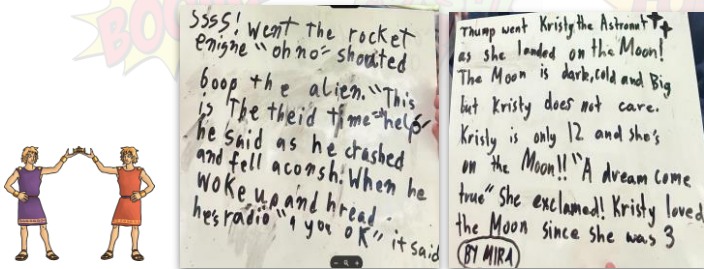 BOO
Ssss! Went The rocket
enigne "oh no" shouted
boop the alien. "This
is The theid time" help
he said as he crashed
and fell aconsh. When he
woke up and hread
hes radio "r you ok" it said
Thump went Kristy the Astronat
as she landed on the Moon!
The Moon is dark, cold and Big
but Kristy does not care.
Kristy is only 12 and she's
on the Moon!! "A dream come
true" She exclaimed! Kristy loved
the Moon since she was 3
BY MIRA